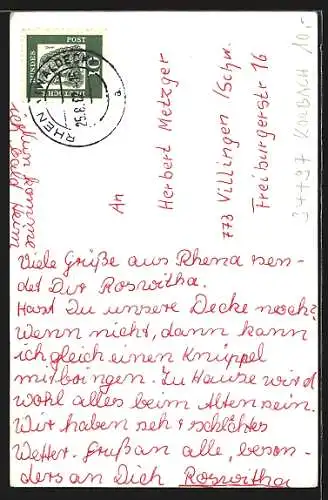 DEUTSCHE
BUNDES
POST
10
RHENA
25.8.63
a
Nun komme
ich bald heim
An
Herbert Metzger
773 Villingen /Schw.
Freiburgerstr 16
34497 KORBACH 10,-
Viele Grüße aus Rhena sen-
det Dir Roswitha.
Hast Du unsere Decke noch?
Wenn nicht, dann kann
ich gleich einen Knüppel
mitbringen. Zu Hause wird
wohl alles beim Alten sein.
Wir haben sehr schlchtes
Wetter. Gruß an alle, beson-
ders an Dich Roswitha